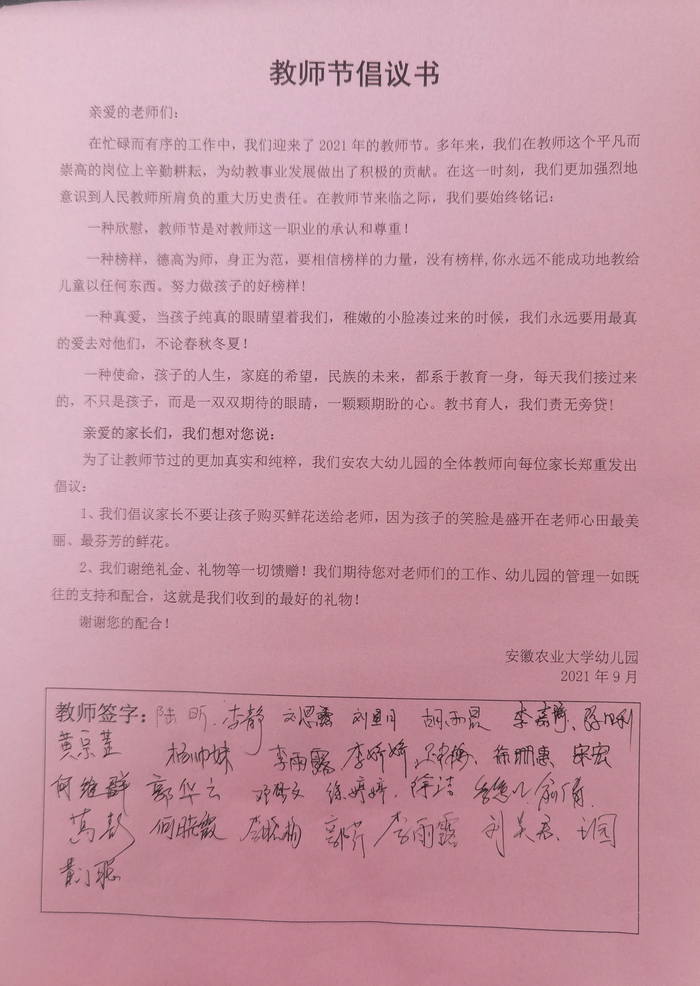 教师节倡议书
亲爱的老师们：
在忙碌而有序的工作中，我们迎来了 2021 年的教师节。多年来，我们在教师这个平凡而
崇高的岗位上辛勤耕耘，为幼教事业发展做出了积极的贡献。在这一时刻，我们更加强烈地
意识到人民教师所肩负的重大历史责任。在教师节来临之际，我们要始终铭记：
一种欣慰，教师节是对教师这一职业的承认和尊重！
一种榜样，德高为师，身正为范，要相信榜样的力量，没有榜样,你永远不能成功地教给
儿童以任何东西。努力做孩子的好榜样!
一种真爱，当孩子纯真的眼睛望着我们，稚嫩的小脸凑过来的时候，我们永远要用最真
的爱去对他们，不论春秋冬夏！
一种使命，孩子的人生，家庭的希望，民族的未来，都系于教育一身，每天我们接过来
的，不只是孩子，而是一双双期待的眼睛，一颗颗期盼的心。教书育人，我们责无旁贷!
亲爱的家长们，我们想对您说：
为了让教师节过的更加真实和纯粹，我们安农大幼儿园的全体教师向每位家长郑重发出
倡议：
1、我们倡议家长不要让孩子购买鲜花送给老师，因为孩子的笑脸是盛开在老师心田最美
丽、最芬芳的鲜花。
2、我们谢绝礼金、礼物等一切馈赠！我们期待您对老师们的工作、幼儿园的管理一如既
往的支持和配合，这就是我们收到的最好的礼物！
谢谢您的配合！
安徽农业大学幼儿园
2021 年 9 月
教师签字：陆昕 李静
李雨露 李娇娇 宋宏
何维群 郭华云 徐婷婷 徐洁
何晓敏 李晓梅 郭芹 李雨露